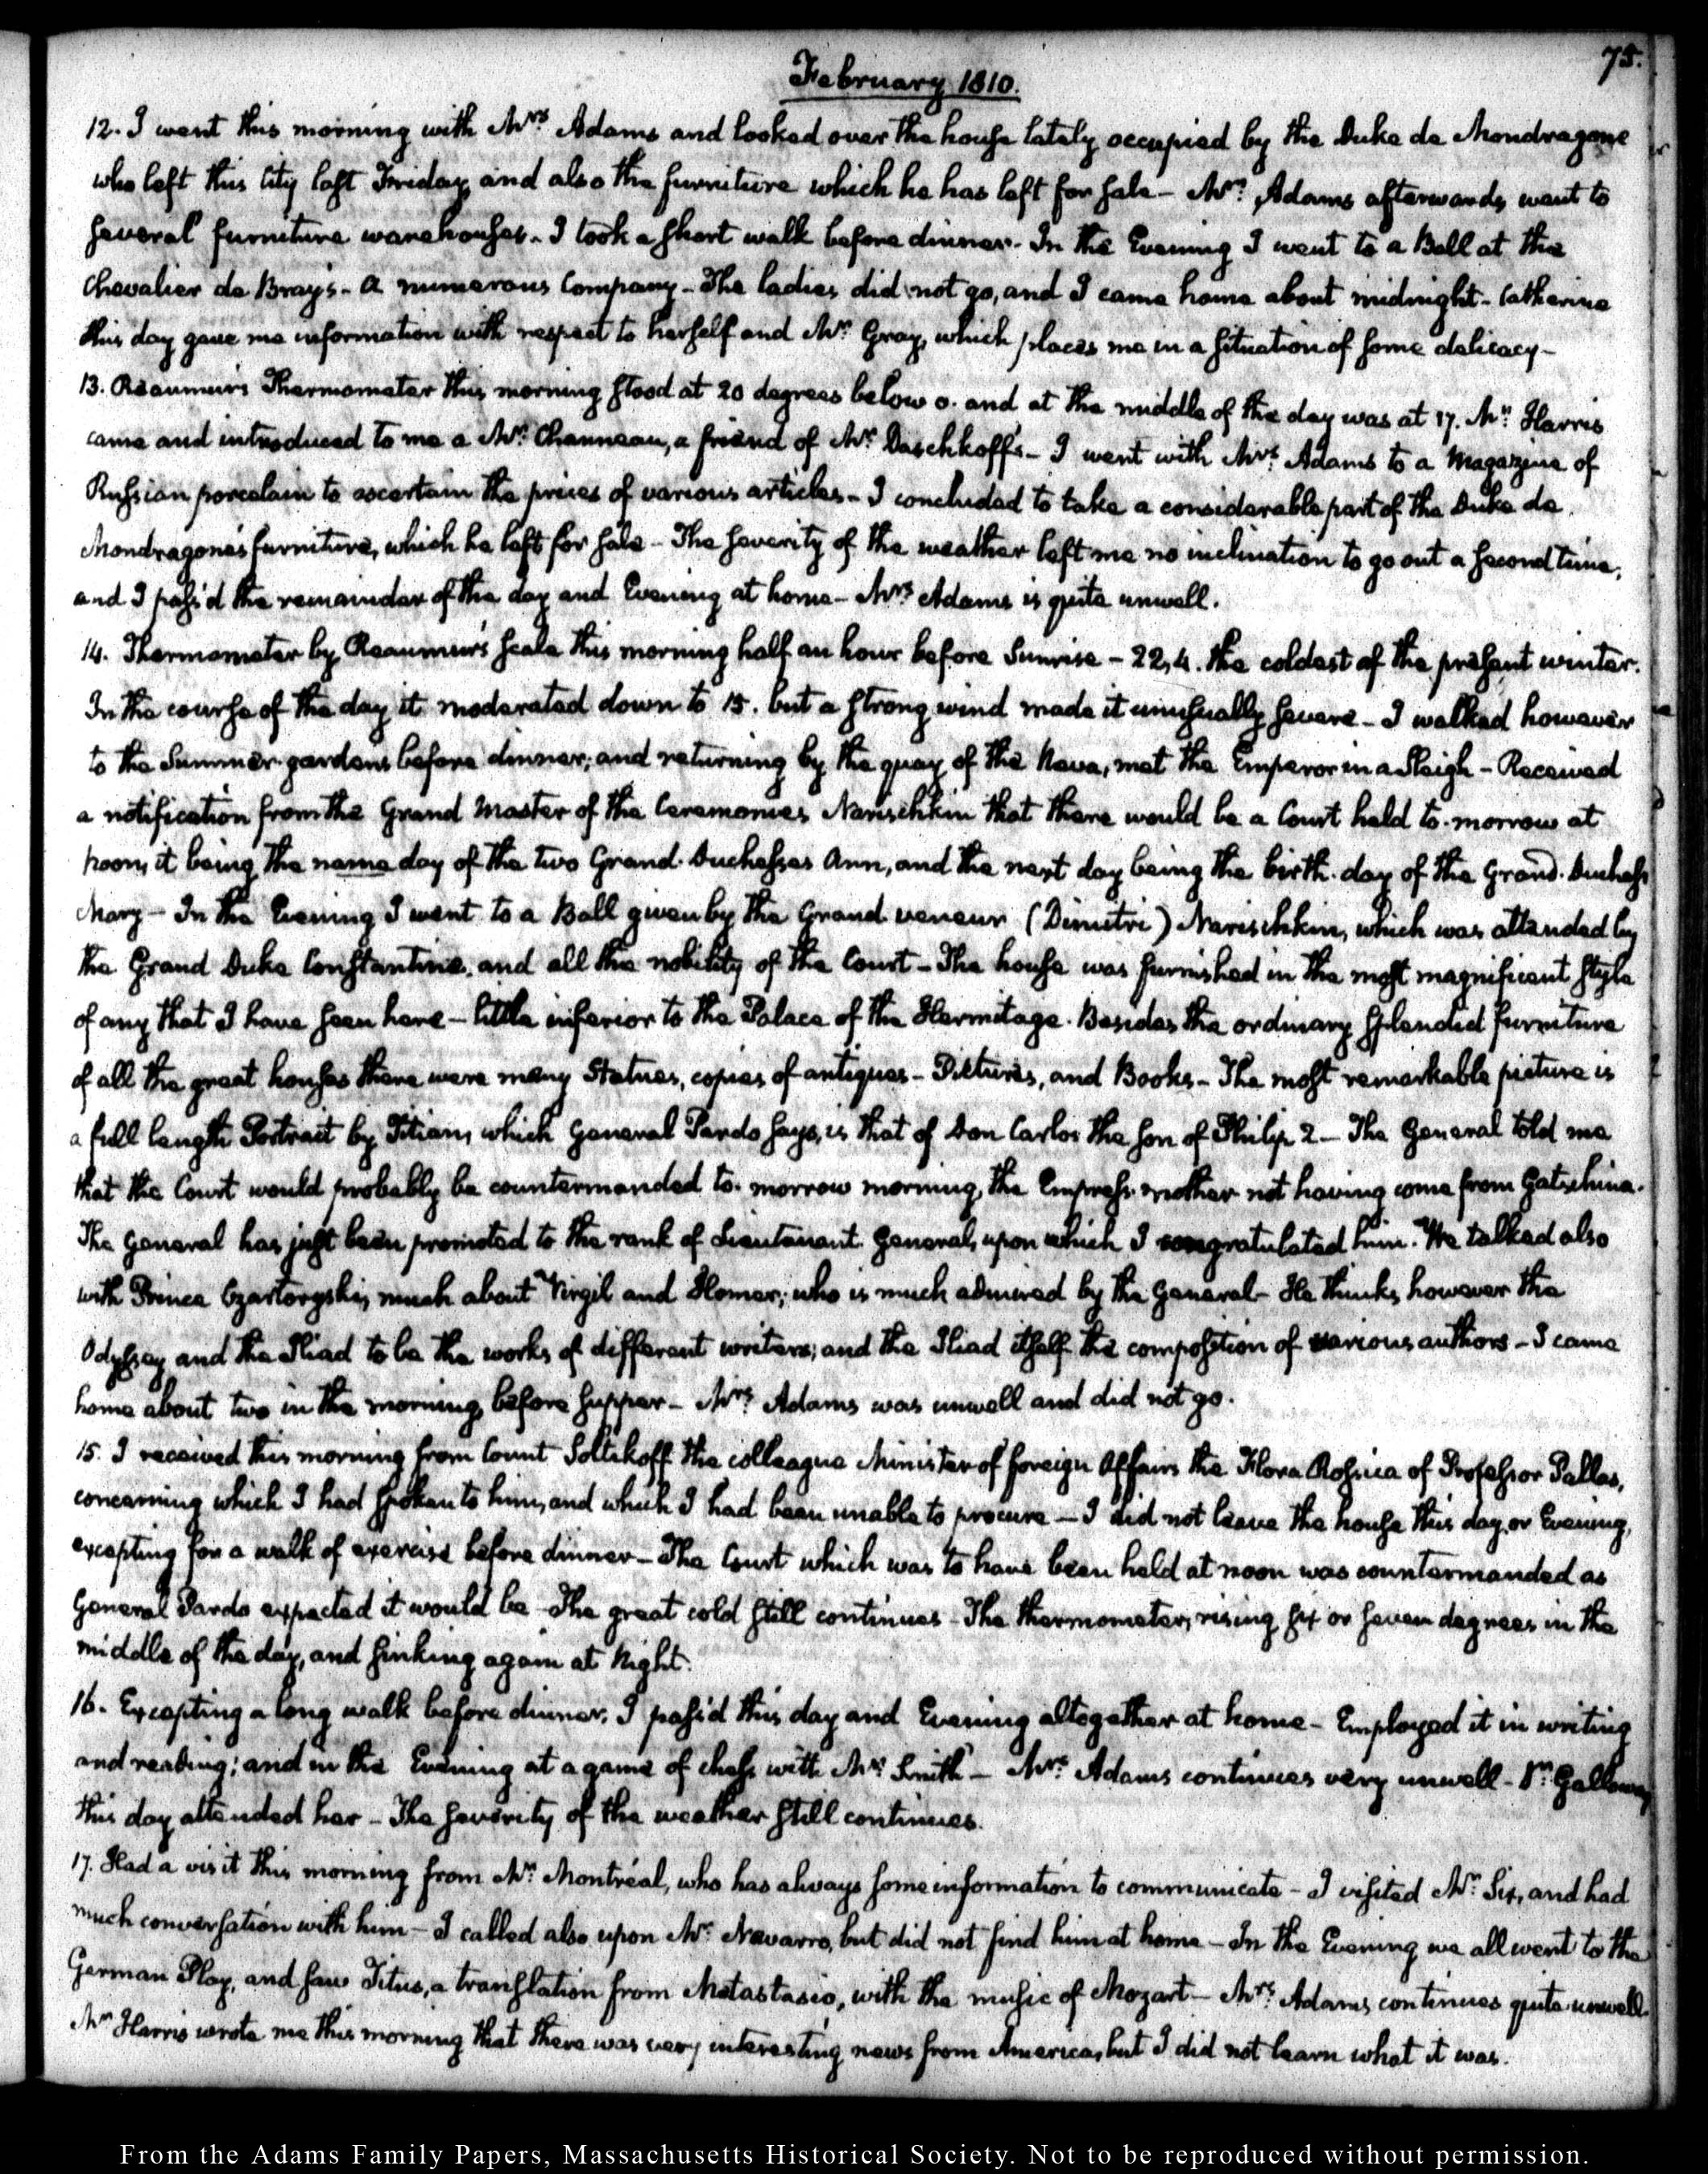 75.
February 1810.
12. I went this morning with Mrs. Adams and looked over the house lately occupied by the Duke de Mondragone
who left this City last Friday, and also the furniture which he has left for sale – Mrs. Adams afterwards went to
several furniture warehouses. I took a short walk before dinner. In the Evening I went to a Ball at the
Chevalier de Bray's – A numerous Company – The ladies did not go, and I came home about midnight – Catherine
this day gave me information with respect to herself and Mr. Gray, which places me in a situation of some delicacy –
13. Reaumur's Thermometer this morning stood at 20 degrees below 0. and at the middle of the day was at 17. Mr. Harris
came and introduced to me a Mr. Channeau, a friend of Mr. Daschkoff's – I went with Mrs. Adams to a Magazine of
Russian porcelain to ascertain the prices of various articles – I concluded to take a considerable part of the Duke de
Mondragone's furniture, which he left for sale – The severity of the weather left me no inclination to go out a second time,
and I pass'd the remainder of the day and Evening at home – Mrs. Adams is quite unwell.
14. Thermometer by Reaumur's scale this morning half an hour before Sunrise – 22,4. the coldest of the present winter.
In the course of the day it moderated down to 15. but a strong wind made it unusually severe – I walked however
to the Summer-gardens before dinner; and returning by the quay of the Neva, met the Emperor in a Sleigh – Received
a notification from the Grand Master of the Ceremonies Narischkin that there would be a Court held to-morrow at
noon, it being the name day of the two Grand-Duchesses Ann, and the next day being the birth-day of the Grand-Duchess
Mary – In the Evening I went to a Ball given by the Grand veneur (Dimitri) Narischkin, which was attended by
the Grand Duke Constantine, and all the nobility of the Court – The house was furnished in the most magnificent style
of any that I have seen here – little inferior to the Palace of the Hermitage. Besides the ordinary splendid furniture
of all the great houses there were many Statues, copies of antiques – Pictures, and Books – The most remarkable picture is
a full length Portrait by Titian, which General Pardo says, is that of Don Carlos the son of Philip 2 – The General told me
that the Court would probably be countermanded to-morrow morning, the Empress-mother not having come from Gatschina.
The General has just been promoted to the rank of Lieutenant-General, upon which I congratulated him. We talked also
with Prince Czartoryski, much about Virgil and Homer; who is much admired by the General – He thinks, however the
Odyssey and the Iliad to be the works of different writers; and the Iliad itself the composition of various authors – I came
home about two in the morning, before supper – Mrs. Adams was unwell and did not go.
15. I received this morning from Count Soltikoff the colleague Minister of foreign Affairs the Flora Rossica of Professor Pallas,
concerning which I had spoken to him, and which I had been unable to procure – I did not leave the house this day, or Evening,
excepting for a walk of exercise before dinner – The Court which was to have been held at noon was countermanded as
General Pardo expected it would be – The great cold still continues – The thermometer, rising six or seven degrees in the
middle of the day, and sinking again at Night.
16. Excepting a long walk before dinner, I pass'd this day and Evening altogether at home – Employed it in writing
and reading; and in the Evening at a game of chess with Mr. Smith – Mrs. Adams continues very unwell – Dr. Galloway
this day attended her – The severity of the weather still continues.
17. Had a visit this morning from Mr. Montréal, who has always some information to communicate – I visited Mr. Six, and had
much conversation with him – I called also upon Mr. Navarro, but did not find him at home – In the Evening we all went to the
German Play, and saw Titus, a translation from Metastasio, with the music of Mozart – Mrs. Adams continues quite unwell.
Mr. Harris wrote me this morning that there was very interesting news from America, but I did not learn what it was.
From the Adams Family Papers, Massachusetts Historical Society. Not to be reproduced without permission.